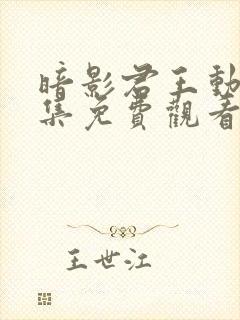 暗影君王動
集免費觀看
王世江